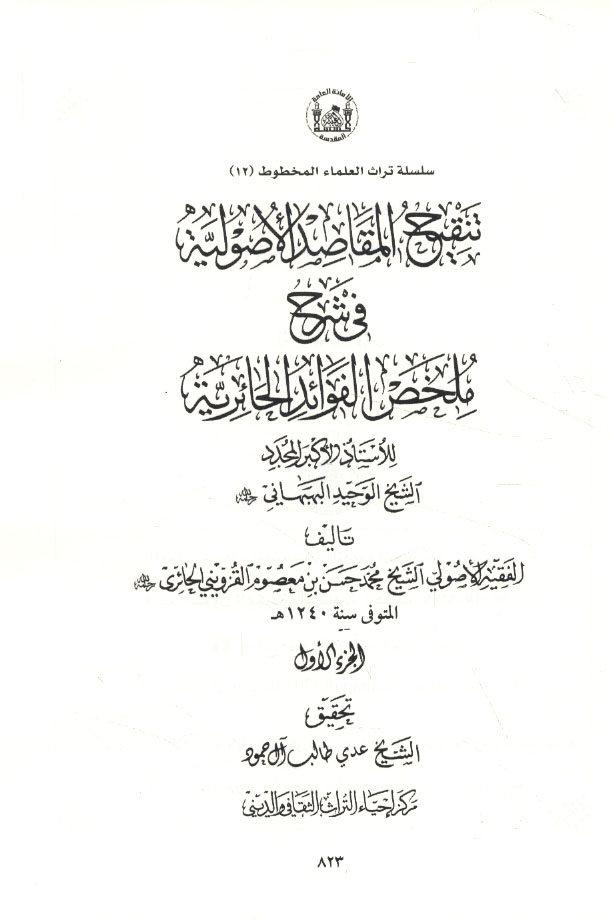 الأمانة العامة
المقدسة
سلسلة تراث العلماء المخطوط (١٢)
تنقيح المقاصد الأصولية
في شرح
ملخص الفوائد الحائرية
للأستاذ الأكبر المجدد
الشيخ الوحيد البهبهاني
تأليف
الفقيه الأصولي الشيخ محمد حسن بن معصوم القزويني الحائري
المتوفى سنة ١٢٤٠هـ
الجزء الأول
تحقيق
الشيخ عدي طالب آل حمود
مركز إحياء التراث الثقافي والديني
٨٢٣